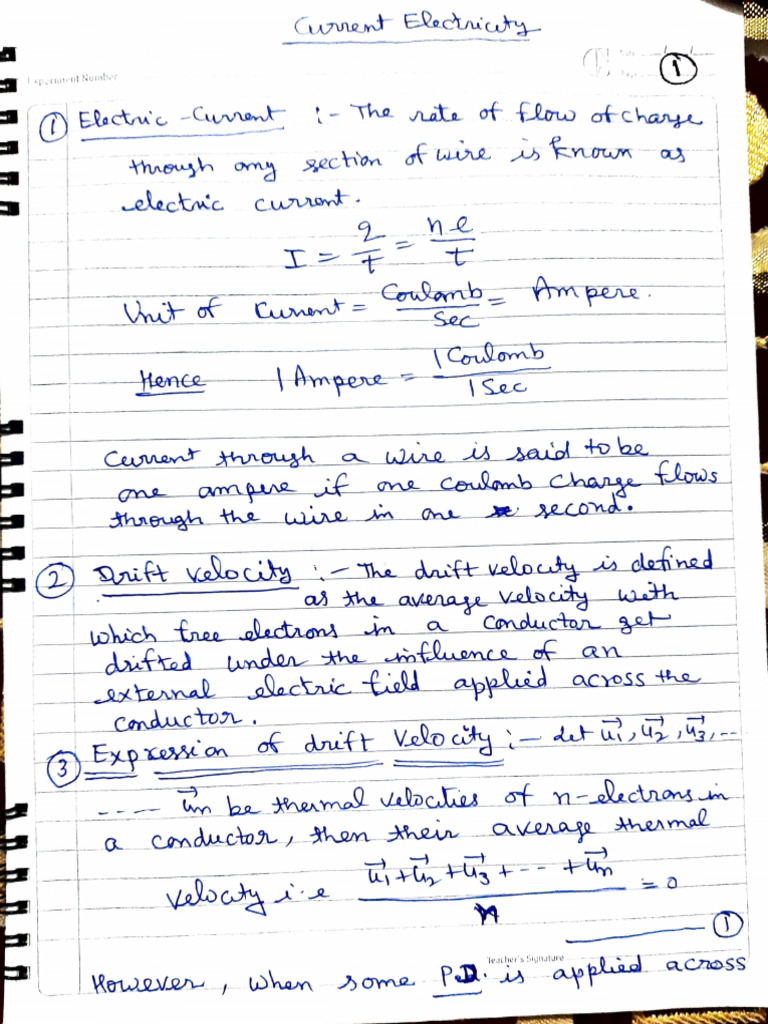 Current Electricity
Experiment Number
1
① Electric-Current :- The rate of flow of charge
through any section of wire is known as
electric current.
I = q/t = ne/t
Unit of Current = Coulomb/Sec = Ampere.
Hence 1 Ampere = 1 Coulomb/1 Sec
Current through a wire is said to be
one ampere if one Coulomb Charge flows
through the wire in one second.
② Drift velocity :- The drift velocity is defined
as the average velocity with
which free electrons in a conductor get
drifted under the influence of an
external electric field applied across the
conductor.
③ Expression of drift Velocity :- let u⃗1, u⃗2, u⃗3, --
---- u⃗n be thermal velocities of n-electrons in
a conductor, then their average thermal
velocity i.e (u⃗1+u⃗2+u⃗3+--+u⃗n)/n = 0
—— ①
Teacher's Signature
However, when some P.D. is applied across